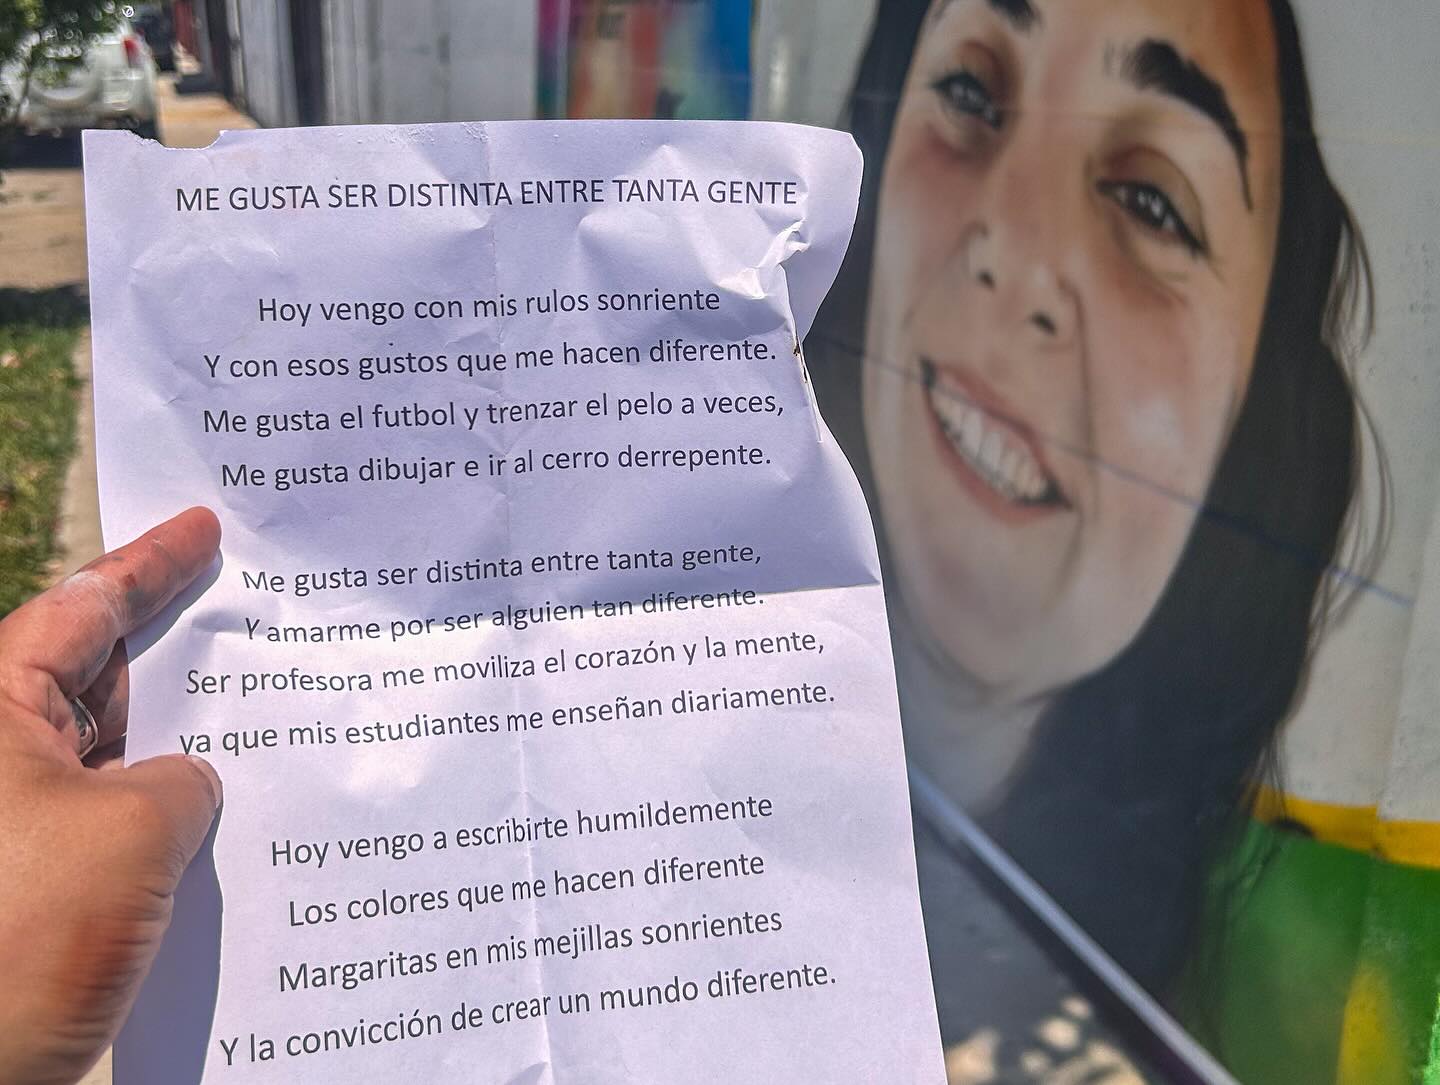 ME GUSTA SER DISTINTA ENTRE TANTA GENTE
Hoy vengo con mis rulos sonriente
Y con esos gustos que me hacen diferente.
Me gusta el futbol y trenzar el pelo a veces,
Me gusta dibujar e ir al cerro derrepente.
Me gusta ser distinta entre tanta gente,
Y amarme por ser alguien tan diferente.
Ser profesora me moviliza el corazón y la mente,
ya que mis estudiantes me enseñan diariamente.
Hoy vengo a escribirte humildemente
Los colores que me hacen diferente
Margaritas en mis mejillas sonrientes
Y la convicción de crear un mundo diferente.